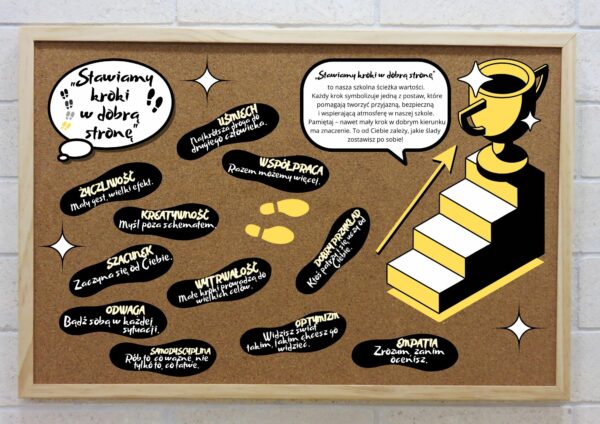 „Stawiamy
kroki
w dobrą
stronę”
„Stawiamy kroki w dobrą stronę”
to nasza szkolna ścieżka wartości.
Każdy krok symbolizuje jedną z postaw, które
pomagają tworzyć przyjazną, bezpieczną
i wspierającą atmosferę w naszej szkole.
Pamiętaj – nawet mały krok w dobrym kierunku
ma znaczenie. To od Ciebie zależy, jakie ślady
zostawisz po sobie!
UŚMIECH
Najkrótsza droga do
drugiego człowieka.
WSPÓŁPRACA
Razem możemy więcej.
ŻYCZLIWOŚĆ
Mały gest, wielki efekt.
KREATYWNOŚĆ
Myśl poza schematem.
DOBRY PRZYKŁAD
Ktoś patrzy i się uczy od
Ciebie.
SZACUNEK
Zaczyna się od Ciebie.
WYTRWAŁOŚĆ
Małe kroki prowadzą do
wielkich celów.
ODWAGA
Bądź sobą w każdej
sytuacji.
OPTYMIZM
Widzisz świat
takim, jakim chcesz go
widzieć.
SAMODYSCYPLINA
Rób to, co ważne, nie
tylko to, co łatwe.
EMPATIA
Zrozum, zanim
ocenisz.